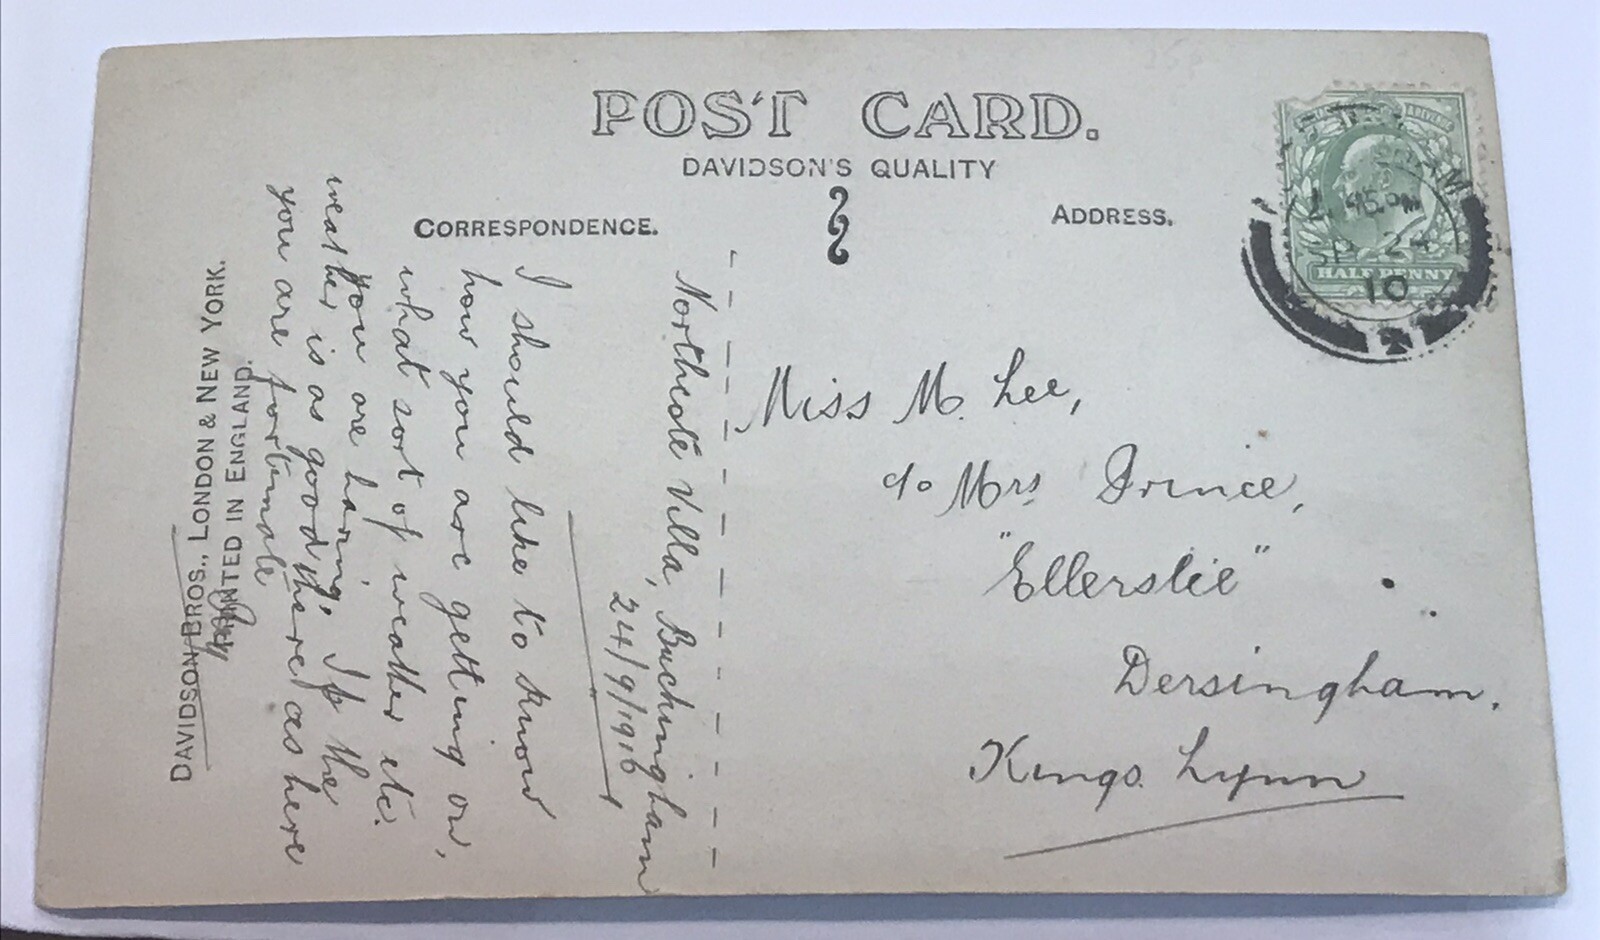 POST CARD.
DAVIDSON'S QUALITY
CORRESPONDENCE.
ADDRESS.
Northcote Villa, Buckingham
24/9/1910
I should like to know
how you are getting on,
what sort of weather etc.
you are having, If the
weather is as good there as here
you are fortunate
DAVIDSON BROS., LONDON & NEW YORK.
PRINTED IN ENGLAND.
Miss M. Lee,
c/o Mrs Prince,
"Ellerslie"
Dersingham.
Kings Lynn
HALF PENNY
2.45.PM
SP 24
10